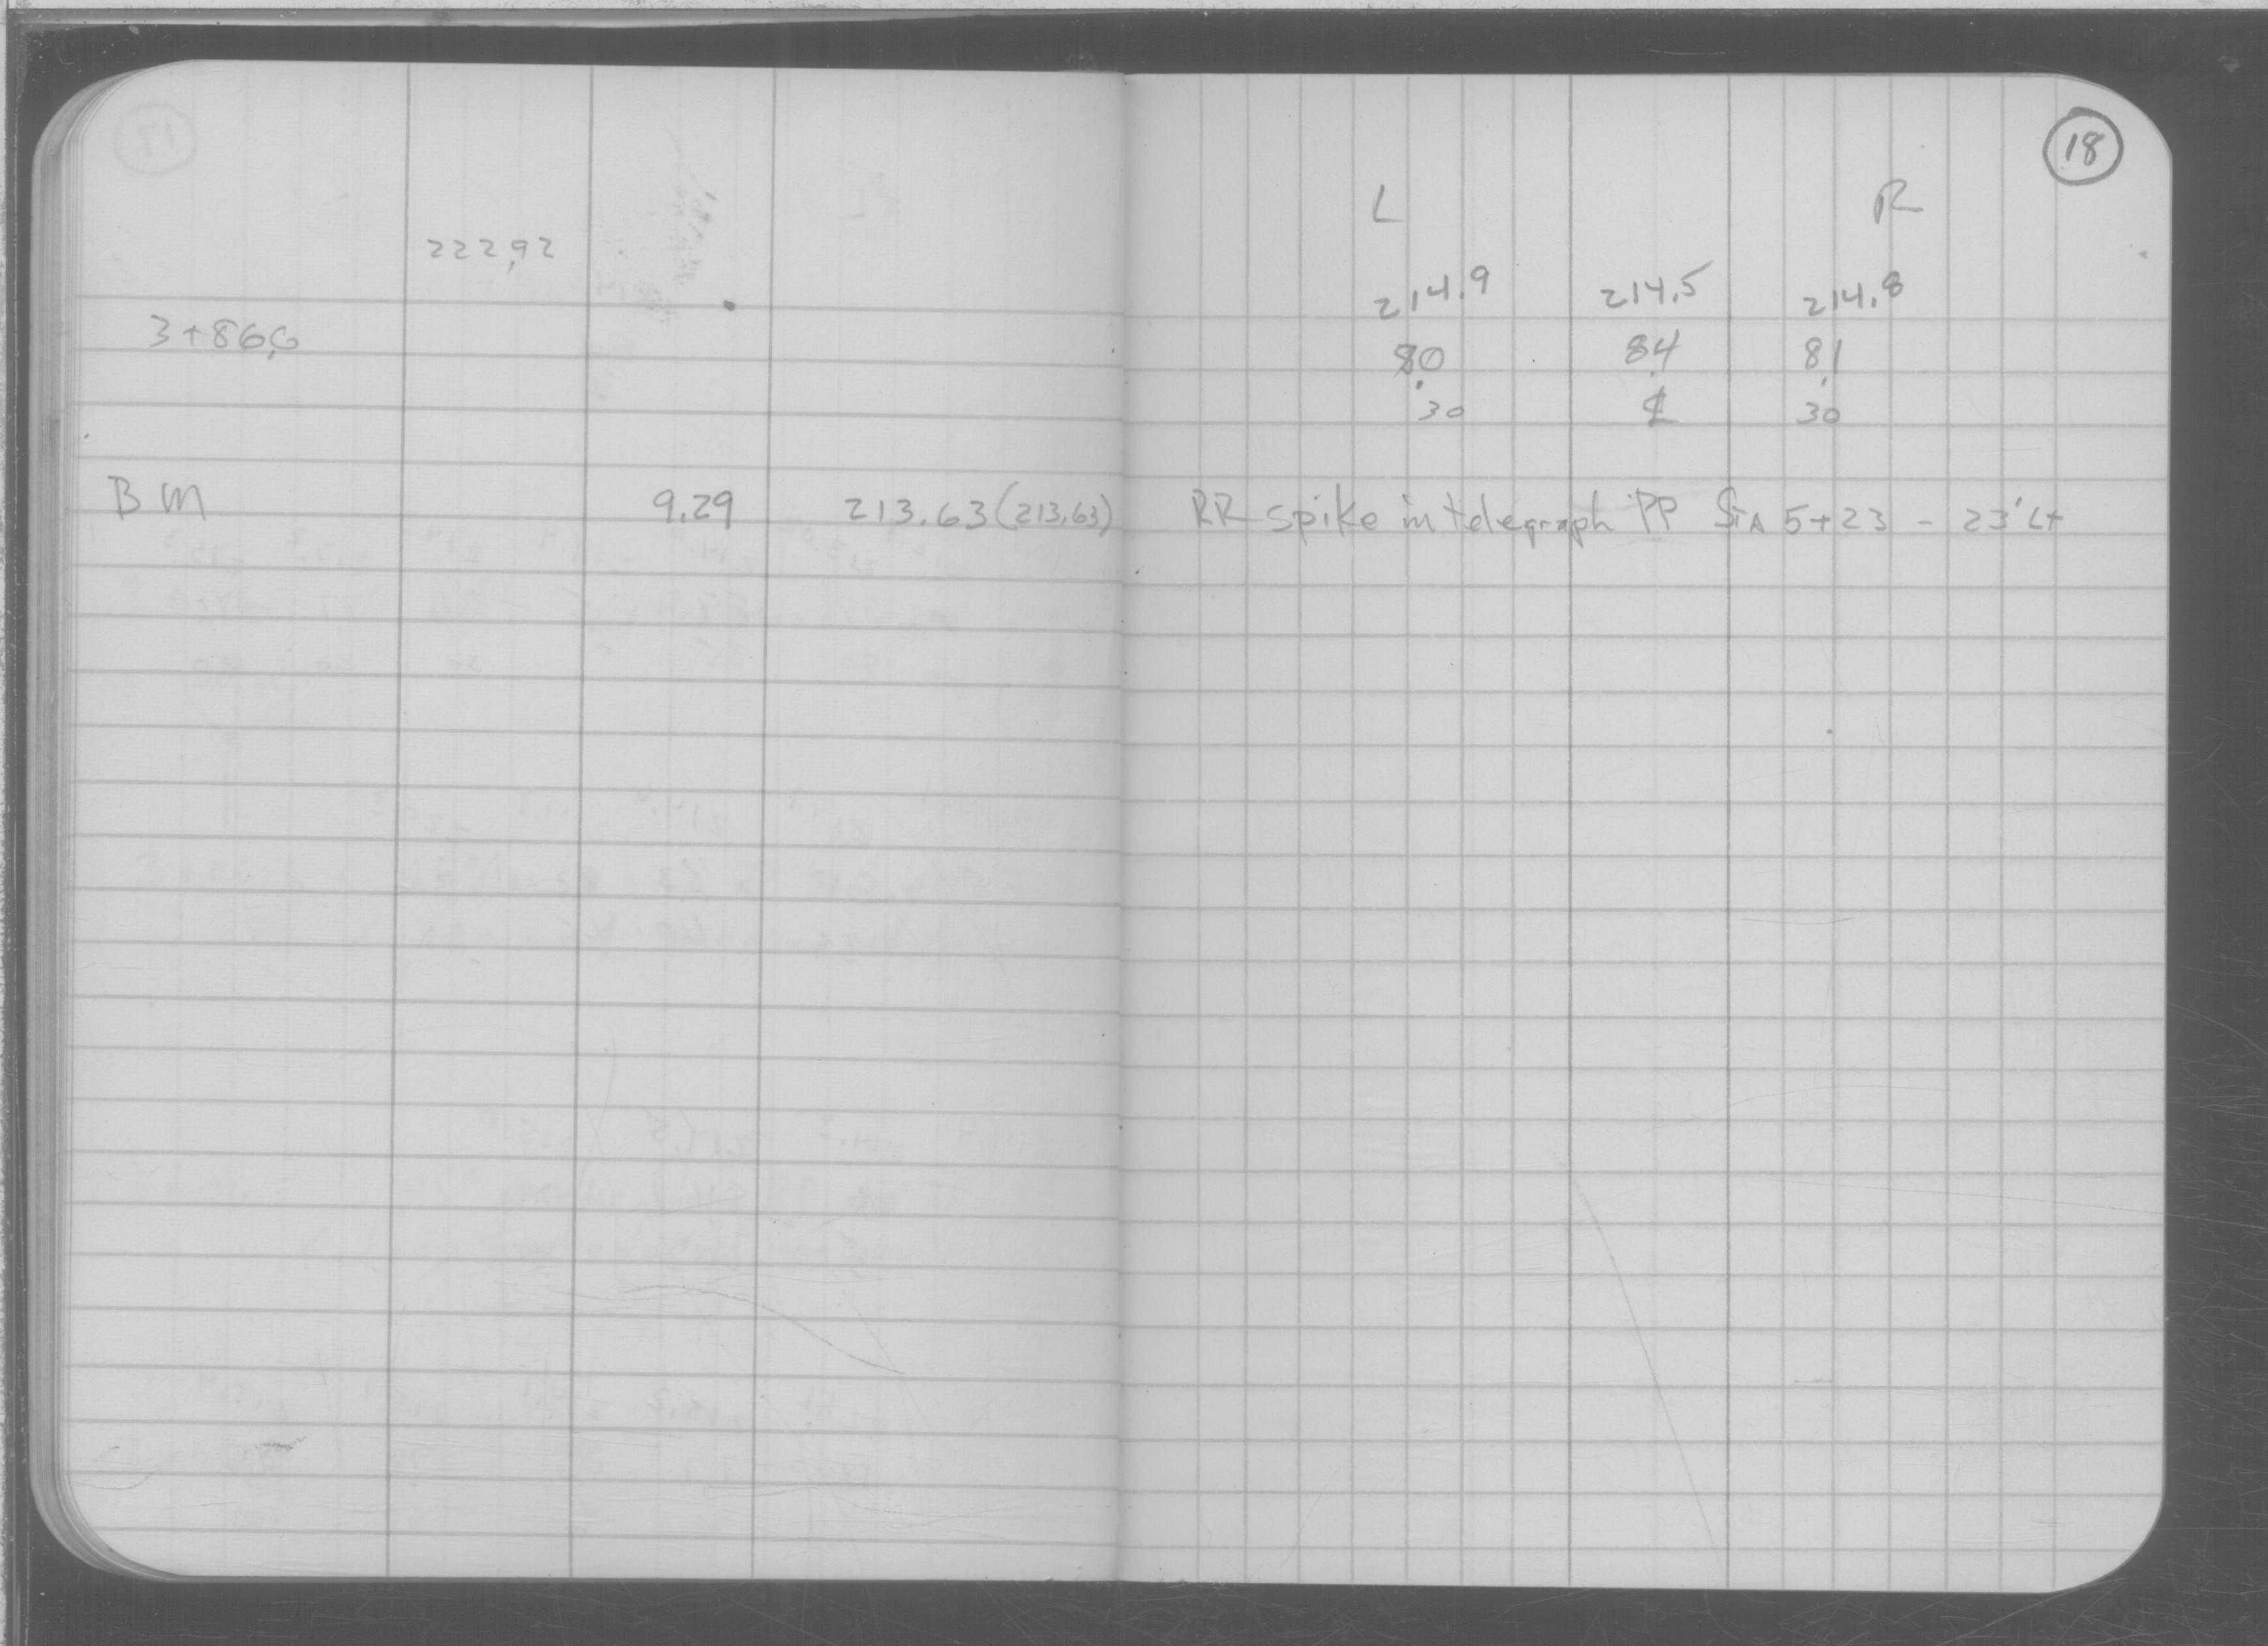 18
L R
222.92
214.9 214.5 214.8
3+86.6 8.0 8.4 8.1
30 ℄ 30
BM 9.29 213.63 (213.63) RR spike in telegraph PP STA 5+23 - 23' Lt